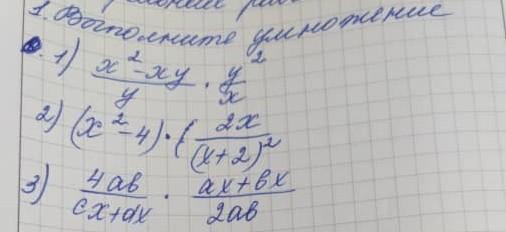 1. Выполните умножение
1) \frac{x^2-xy}{y} \cdot \frac{y^2}{x}
2) (x^2-4) \cdot ( \frac{2x}{(x+2)^2}
3) \frac{4ab}{cx+dx} \cdot \frac{ax+bx}{2ab}